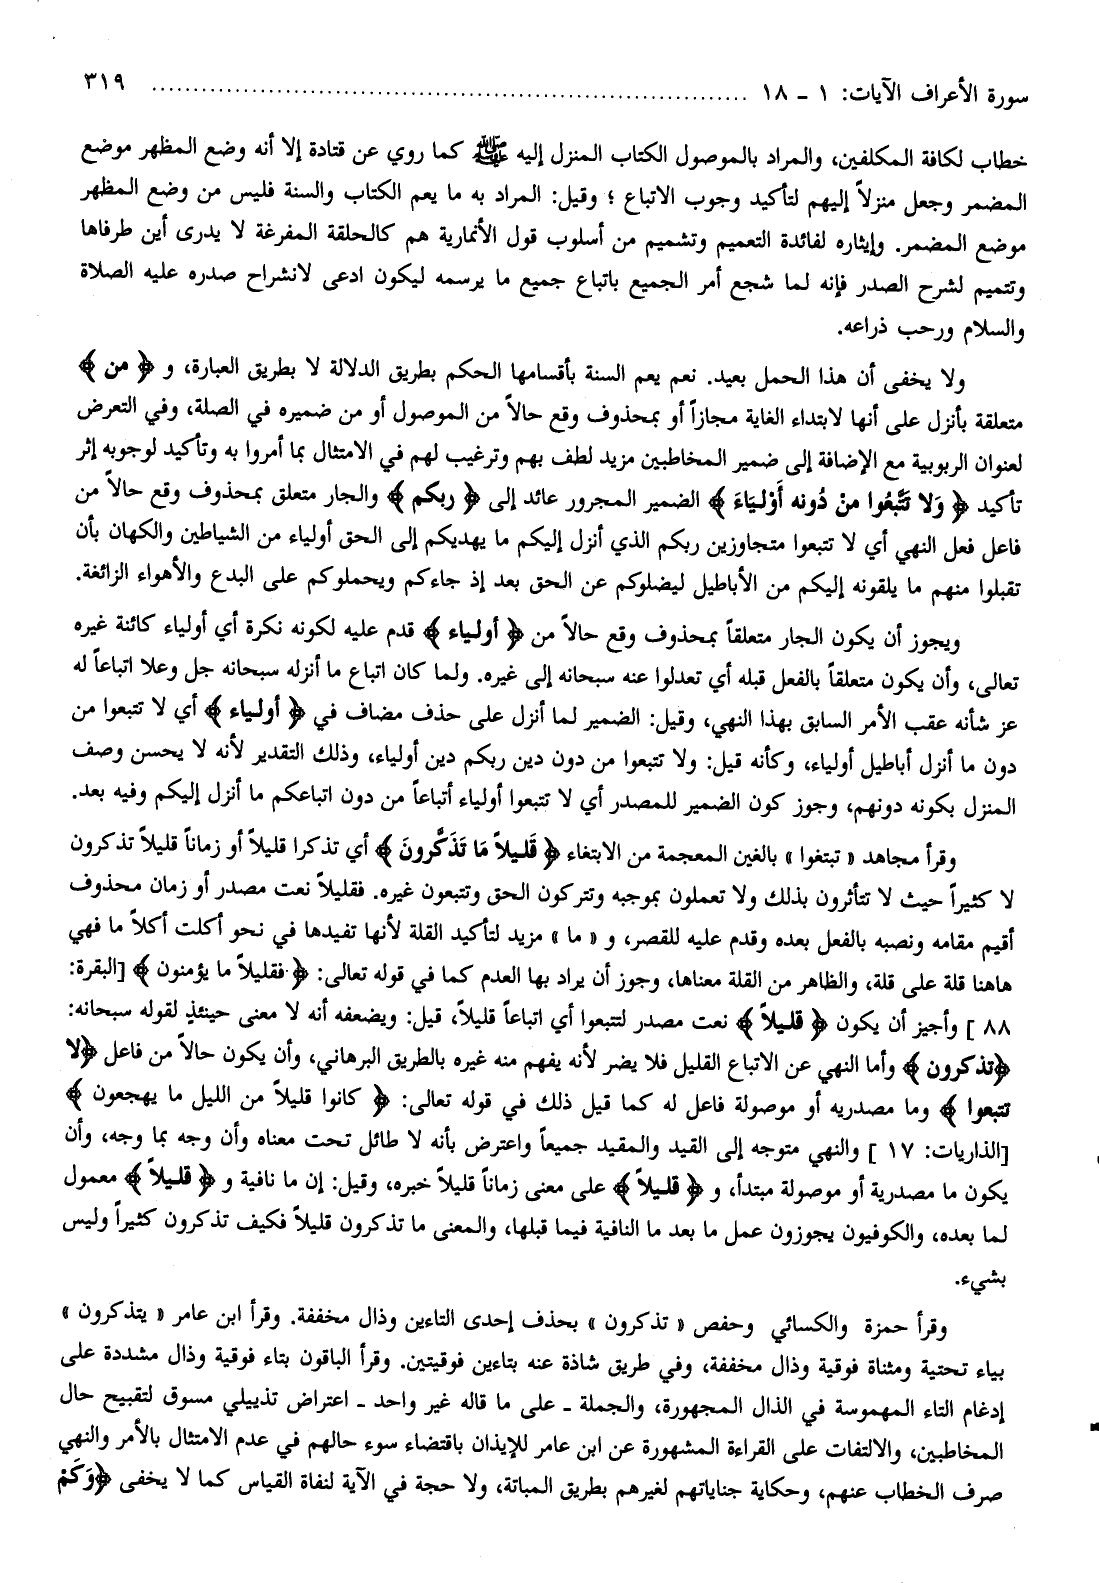 سورة الأعراف الآيات: ١ - ١٨ ................................................................ ٣١٩
خطاب لكافة المكلفين، والمراد بالموصول الكتاب المنزل إليه ﷺ كما روي عن قتادة إلا أنه وضع المظهر موضع
المضمر وجعل منزلاً إليهم لتأكيد وجوب الاتباع ؛ وقيل: المراد به ما يعم الكتاب والسنة فليس من وضع المظهر
موضع المضمر. وإيثاره لفائدة التعميم وتشميم من أسلوب قول الأنمارية هم كالحلقة المفرغة لا يدرى أين طرفاها
وتتميم لشرح الصدر فإنه لما شجع أمر الجميع باتباع جميع ما يرسمه ليكون ادعى لانشراح صدره عليه الصلاة
والسلام ورحب ذراعه.
ولا يخفى أن هذا الحمل بعيد. نعم يعم السنة بأقسامها الحكم بطريق الدلالة لا بطريق العبارة، و ﴿ من ﴾
متعلقة بأنزل على أنها لابتداء الغاية مجازاً أو بمحذوف وقع حالاً من الموصول أو من ضميره في الصلة، وفي التعرض
لعنوان الربوبية مع الإضافة إلى ضمير المخاطبين مزيد لطف بهم وترغيب لهم في الامتثال بما أمروا به وتأكيد لوجوبه إثر
تأكيد ﴿ وَلا تَتَّبعُوا منْ دُونه أَوْليَاءَ ﴾ الضمير المجرور عائد إلى ﴿ ربكم ﴾ والجار متعلق بمحذوف وقع حالاً من
فاعل فعل النهي أي لا تتبعوا متجاوزين ربكم الذي أنزل إليكم ما يهديكم إلى الحق أولياء من الشياطين والكهان بأن
تقبلوا منهم ما يلقونه إليكم من الأباطيل ليضلوكم عن الحق بعد إذ جاءكم ويحملوكم على البدع والأهواء الزائغة.
ويجوز أن يكون الجار متعلقاً بمحذوف وقع حالاً من ﴿ أولياء ﴾ قدم عليه لكونه نكرة أي أولياء كائنة غيره
تعالى، وأن يكون متعلقاً بالفعل قبله أي تعدلوا عنه سبحانه إلى غيره. ولما كان اتباع ما أنزله سبحانه جل وعلا اتباعاً له
عز شأنه عقب الأمر السابق بهذا النهي، وقيل: الضمير لما أنزل على حذف مضاف في ﴿ أولياء ﴾ أي لا تتبعوا من
دون ما أنزل أباطيل أولياء، وكأنه قيل: ولا تتبعوا من دون دين ربكم دين أولياء، وذلك التقدير لأنه لا يحسن وصف
المنزل بكونه دونهم، وجوز كون الضمير للمصدر أي لا تتبعوا أولياء أتباعاً من دون اتباعكم ما أنزل إليكم وفيه بعد.
وقرأ مجاهد « تبتغوا » بالغين المعجمة من الابتغاء ﴿ قَليلاً مَا تَذَكَّرونَ ﴾ أي تذكرا قليلاً أو زماناً قليلاً تذكرون
لا كثيراً حيث لا تتأثرون بذلك ولا تعملون بموجبه وتتركون الحق وتتبعون غيره. فقليلاً نعت مصدر أو زمان محذوف
أقيم مقامه ونصبه بالفعل بعده وقدم عليه للقصر، و « ما » مزيد لتأكيد القلة لأنها تفيدها في نحو أكلت أكلاً ما فهي
هاهنا قلة على قلة، والظاهر من القلة معناها، وجوز أن يراد بها العدم كما في قوله تعالى: ﴿ فقليلاً ما يؤمنون ﴾ [البقرة:
٨٨ ] وأجيز أن يكون ﴿ قليلاً ﴾ نعت مصدر لتتبعوا أي اتباعاً قليلاً، قيل: ويضعفه أنه لا معنى حينئذٍ لقوله سبحانه:
﴿تذكرون ﴾ وأما النهي عن الاتباع القليل فلا يضر لأنه يفهم منه غيره بالطريق البرهاني، وأن يكون حالاً من فاعل ﴿لا
تتبعوا ﴾ وما مصدريه أو موصولة فاعل له كما قيل ذلك في قوله تعالى: ﴿ كانوا قليلاً من الليل ما يهجعون ﴾
[الذاريات: ١٧ ] والنهي متوجه إلى القيد والمقيد جميعاً واعترض بأنه لا طائل تحت معناه وأن وجه بما وجه، وأن
يكون ما مصدرية أو موصولة مبتدأ، و ﴿ قليلاً ﴾ على معنى زماناً قليلاً خبره، وقيل: إن ما نافية و ﴿ قليلاً ﴾ معمول
لما بعده، والكوفيون يجوزون عمل ما بعد ما النافية فيما قبلها، والمعنى ما تذكرون قليلاً فكيف تذكرون كثيراً وليس
بشيء.
وقرأ حمزة والكسائي وحفص « تذكرون » بحذف إحدى التاءين وذال مخففة. وقرأ ابن عامر « يتذكرون »
بياء تحتية ومثناة فوقية وذال مخففة، وفي طريق شاذة عنه بتاءين فوقيتين. وقرأ الباقون بتاء فوقية وذال مشددة على
إدغام التاء المهموسة في الذال المجهورة، والجملة ـ على ما قاله غير واحد ـ اعتراض تذييلي مسوق لتقبيح حال
المخاطبين، والالتفات على القراءة المشهورة عن ابن عامر للإيذان باقتضاء سوء حالهم في عدم الامتثال بالأمر والنهي
صرف الخطاب عنهم، وحكاية جناياتهم لغيرهم بطريق المباثة، ولا حجة في الآية لنفاة القياس كما لا يخفى ﴿وَكَمْ